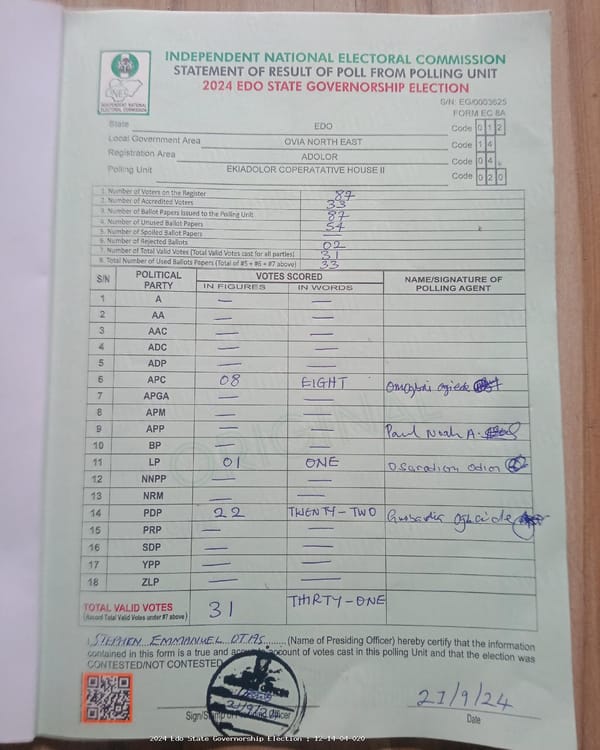 INDEPENDENT NATIONAL ELECTORAL COMMISSION
STATEMENT OF RESULT OF POLL FROM POLLING UNIT
2024 EDO STATE GOVERNORSHIP ELECTION
INDEPENDENT NATIONAL
ELECTORAL COMMISSION
S/N: EG/0003625
FORM EC 8A
State EDO Code 0 1 2
Local Government Area OVIA NORTH EAST Code 1 4
Registration Area ADOLOR Code 0 4
Polling Unit EKIADOLOR COPERATATIVE HOUSE II Code 0 2 0
1. Number of Voters on the Register 87
2. Number of Accredited Voters 33
3. Number of Ballot Papers Issued to the Polling Unit 87
4. Number of Unused Ballot Papers 54
5. Number of Spoiled Ballot Papers —
6. Number of Rejected Ballots 02
7. Number of Total Valid Votes (Total Valid Votes cast for all parties) 31
8. Total Number of Used Ballots Papers (Total of #5 + #6 + #7 above) 33
S/N POLITICAL PARTY VOTES SCORED NAME/SIGNATURE OF POLLING AGENT
IN FIGURES IN WORDS
1 A — —
2 AA — —
3 AAC — —
4 ADC — —
5 ADP — —
6 APC 08 EIGHT
7 APGA — —
8 APM — —
9 APP — — Paul Noah A.
10 BP — —
11 LP 01 ONE
12 NNPP — —
13 NRM — —
14 PDP 22 TWENTY-TWO
15 PRP — —
16 SDP — —
17 YPP — —
18 ZLP — —
TOTAL VALID VOTES 31 THIRTY-ONE
(Record Total Valid Votes under #7 above)
I, STEPHEN EMMANUEL OTAS (Name of Presiding Officer) hereby certify that the information
contained in this form is a true and accurate account of votes cast in this polling Unit and that the election was
CONTESTED/NOT CONTESTED
21/9/24
Sign/Stamp of Officer Date
2024 Edo State Governorship Election : 12-14-04-020